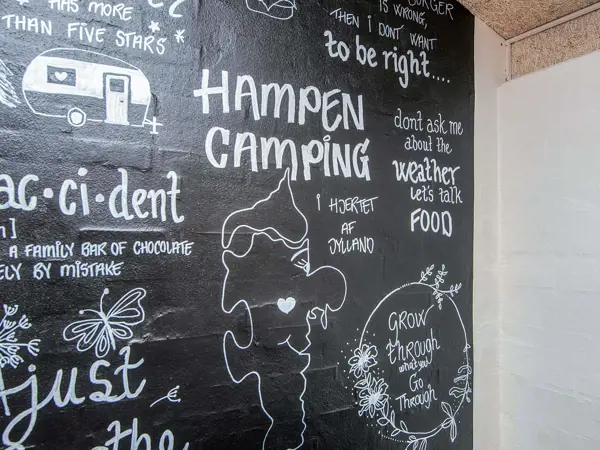 HAS MORE
THAN FIVE STARS
BURGER
IS WRONG,
THEN I DON'T WANT
to be right....
HAMPEN
CAMPING
I HJERTET
AF
JYLLAND
dont ask me
about the
weather
let's talk
FOOD
ac·ci·dent
A FAMILY BAR OF CHOCOLATE
ELY BY MISTAKE
GROW
through
what you
GO
Through
Adjust
the